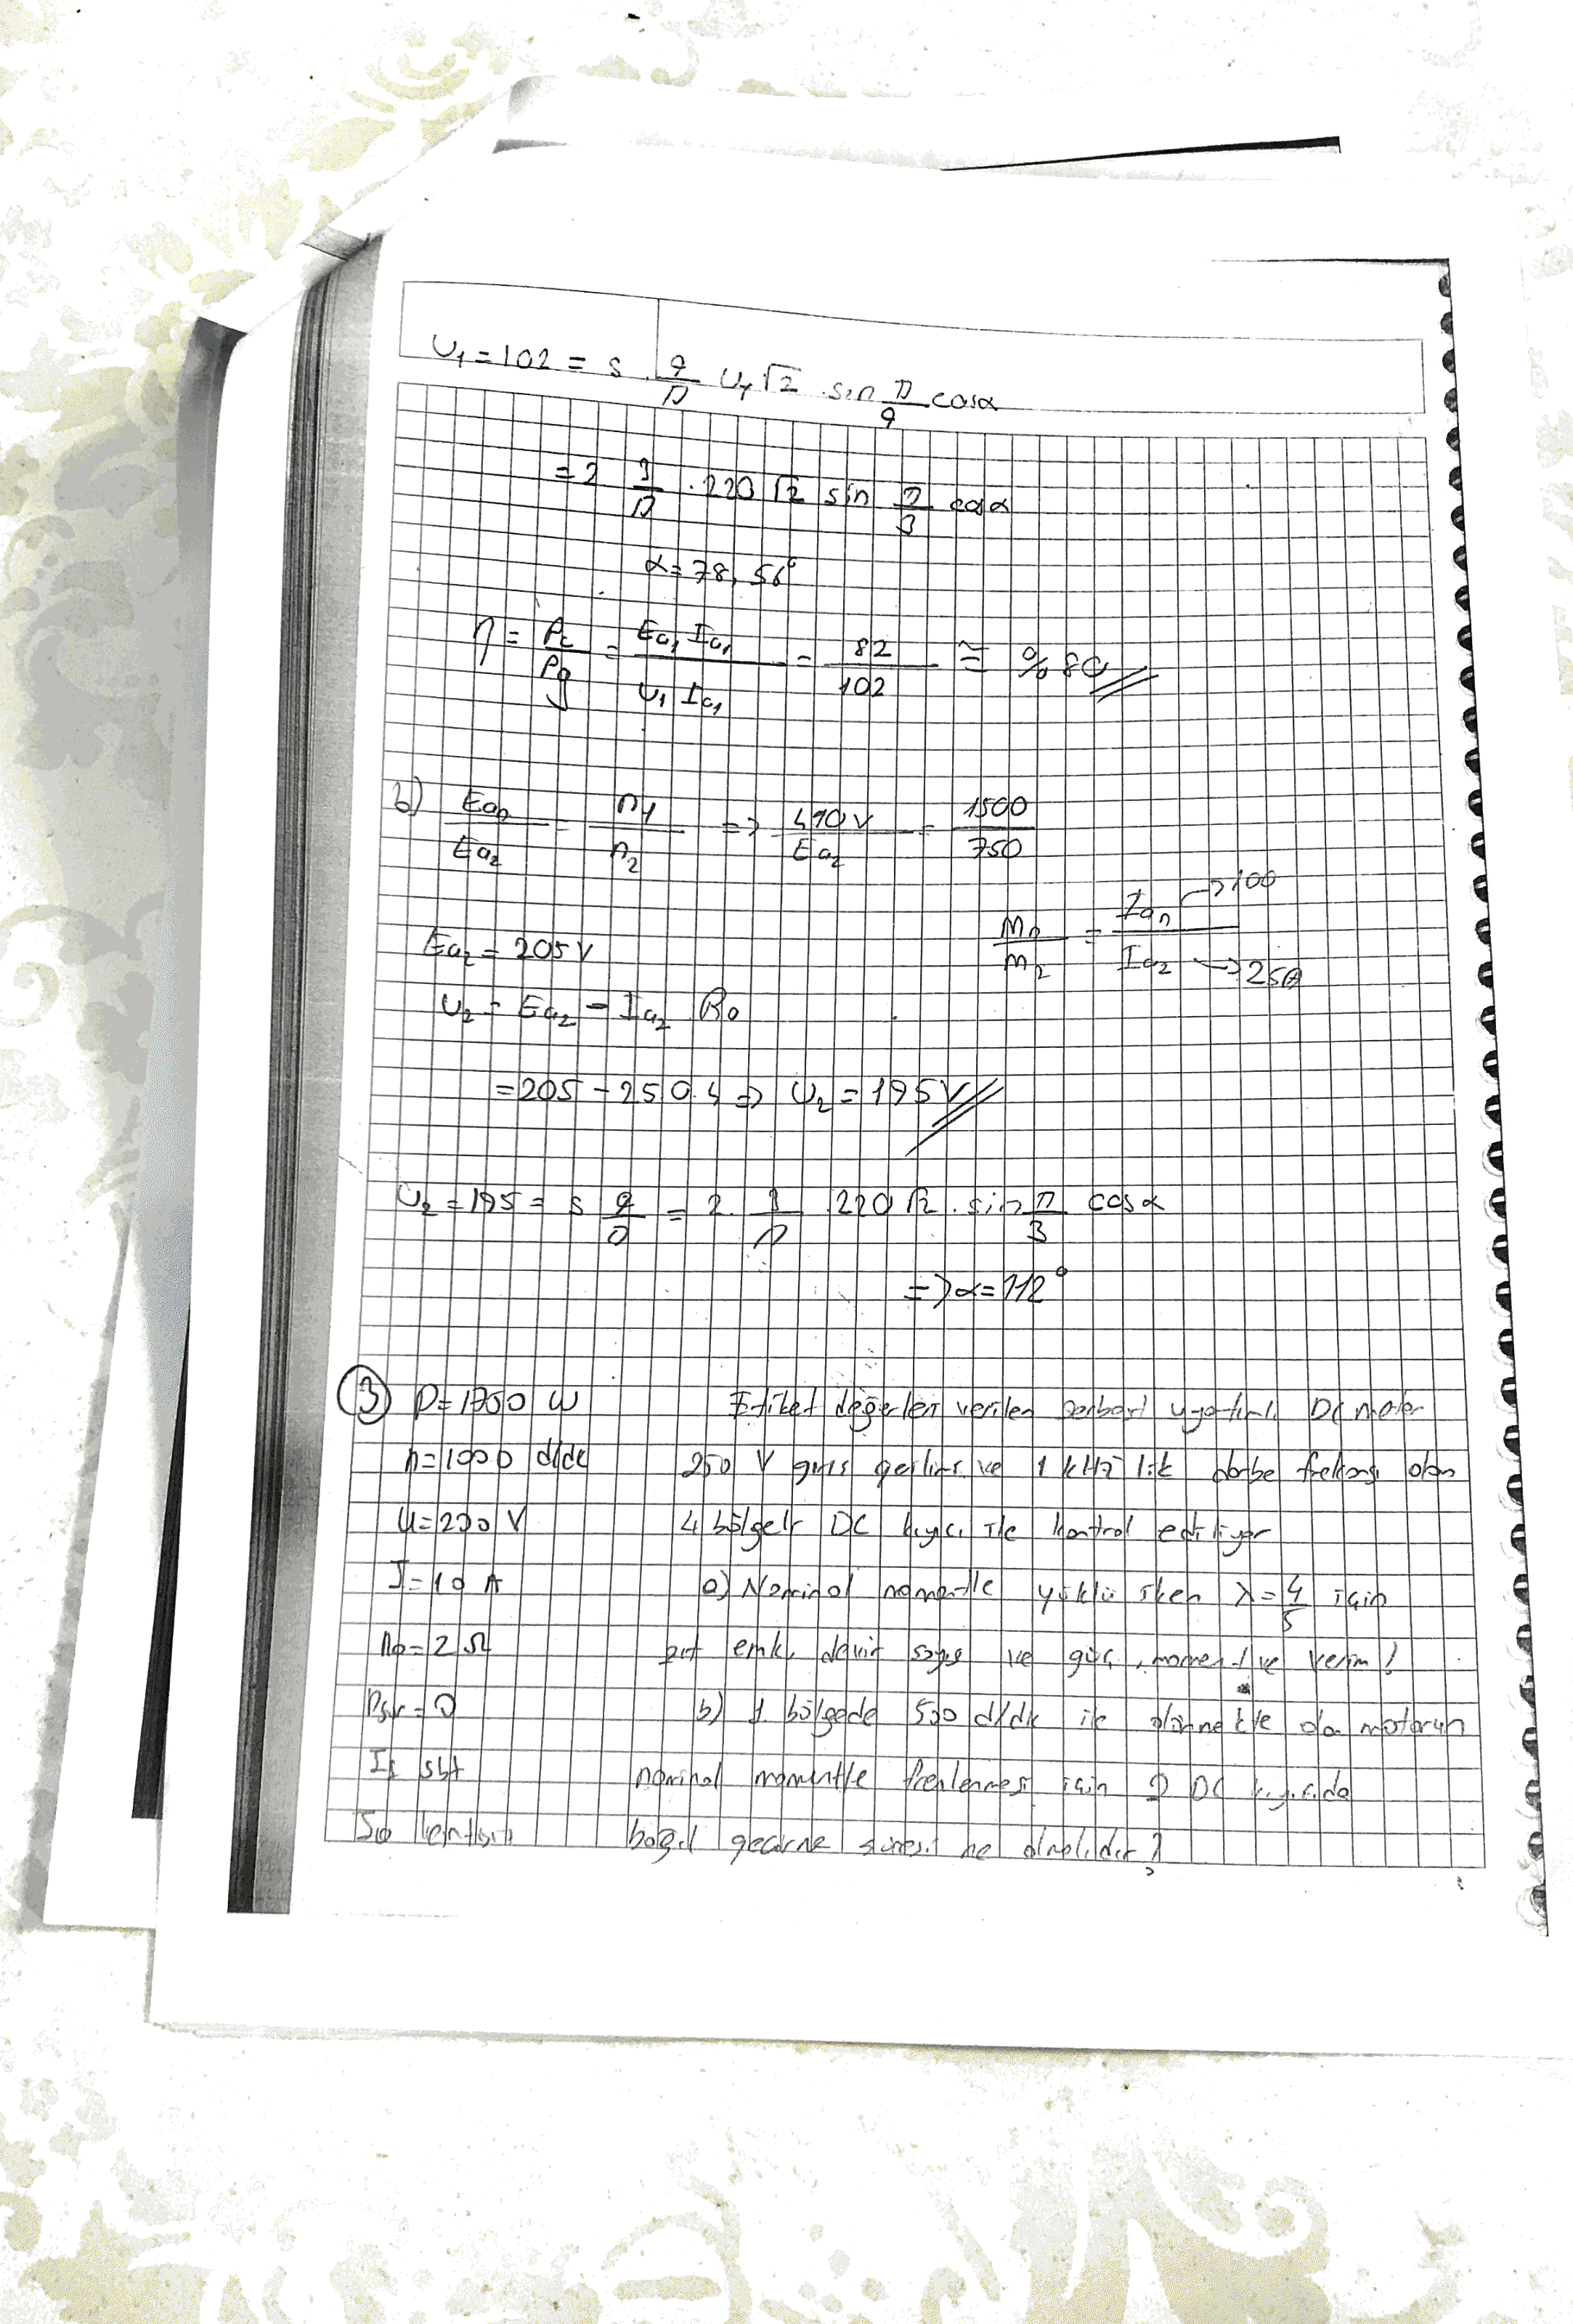 U₁ = 102 = s . q/π U₁ √2 . sin π/q cosα
= 2 3/π . 220 √2 sin π/3 cosα
α = 78,56°
η = Pç/Pg = Ea₁ Ia₁ / U₁ Ia₁ = 82/102 ≅ %80
b) Ean/Ea₂ = n₁/n₂ => 410V/Ea₂ = 1500/750
Mn/M₂ = Ian → 100 / Ia₂ → 25A
Ea₂ = 205V
U₂ = Ea₂ - Ia₂ Ra
= 205 - 25 0.4 => U₂ = 195V
U₂ = 195 = s q/π = 2. 3/π 220 √2 . sin π/3 cosα
=> α = 112°
③ P = 1750 W Etiket değerleri verilen serbest uyartımlı DC motor
n = 1000 d/dk 250 V giriş gerilimi ve 1 kHz lik darbe frekansı olan
U = 200 V 4 bölgeli DC kıyıcı ile kontrol ediliyor
I = 10 A a) Nominal momentle yüklü iken λ = 4/5 için
Ra = 2 Ω zıt emk, devir sayısı ve güç, moment ve verim!
Psür = 0 b) 1 bölgede 500 d/dk ile dönmekte olan motorun
If sbt nominal momentle frenlenmesi için DC kıyıcıda
bağıl geçirme süresi ne olmalıdır?